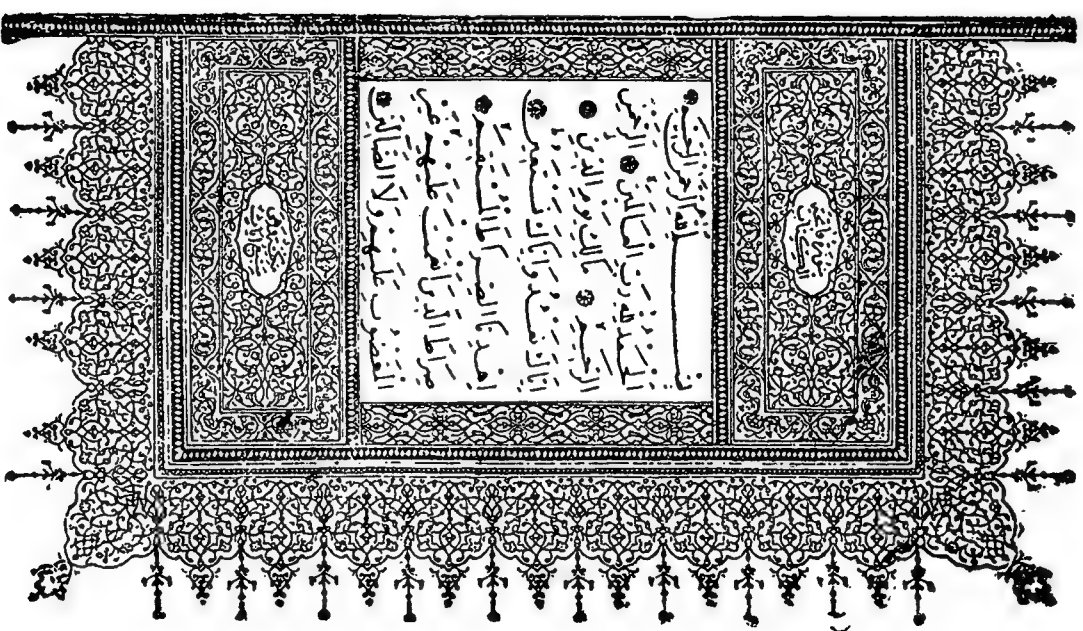 بسم الله الرحمن الرحيم
الحمد لله رب العالمين الرحمن
الرحيم ملك يوم الدين
اياك نعبد واياك نستعين
اهدنا الصراط المستقيم
صراط الذين انعمت عليهم غير
المغضوب عليهم ولا الضالين